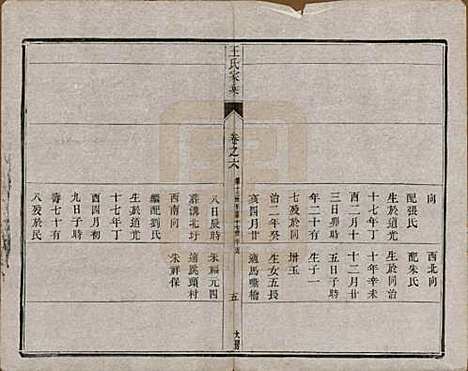 向
配張氏
生於道光
十七年丁
酉二月十
三日卯時
年二十有
七殁於同
治二年癸
亥四月廿
西北向
配朱氏
生於同治
十年辛未
十二月廿
五日子時
生子一
增玉
生女五長
適馬嘴橋
王氏家乘
卷之六
五
大房
八日辰時
葬溝北圩
西南向
繼配劉氏
生於道光
十七年丁
酉四月初
九日子時
壽七十有
八殁於民
朱福元四
適奚頭村
朱祥保